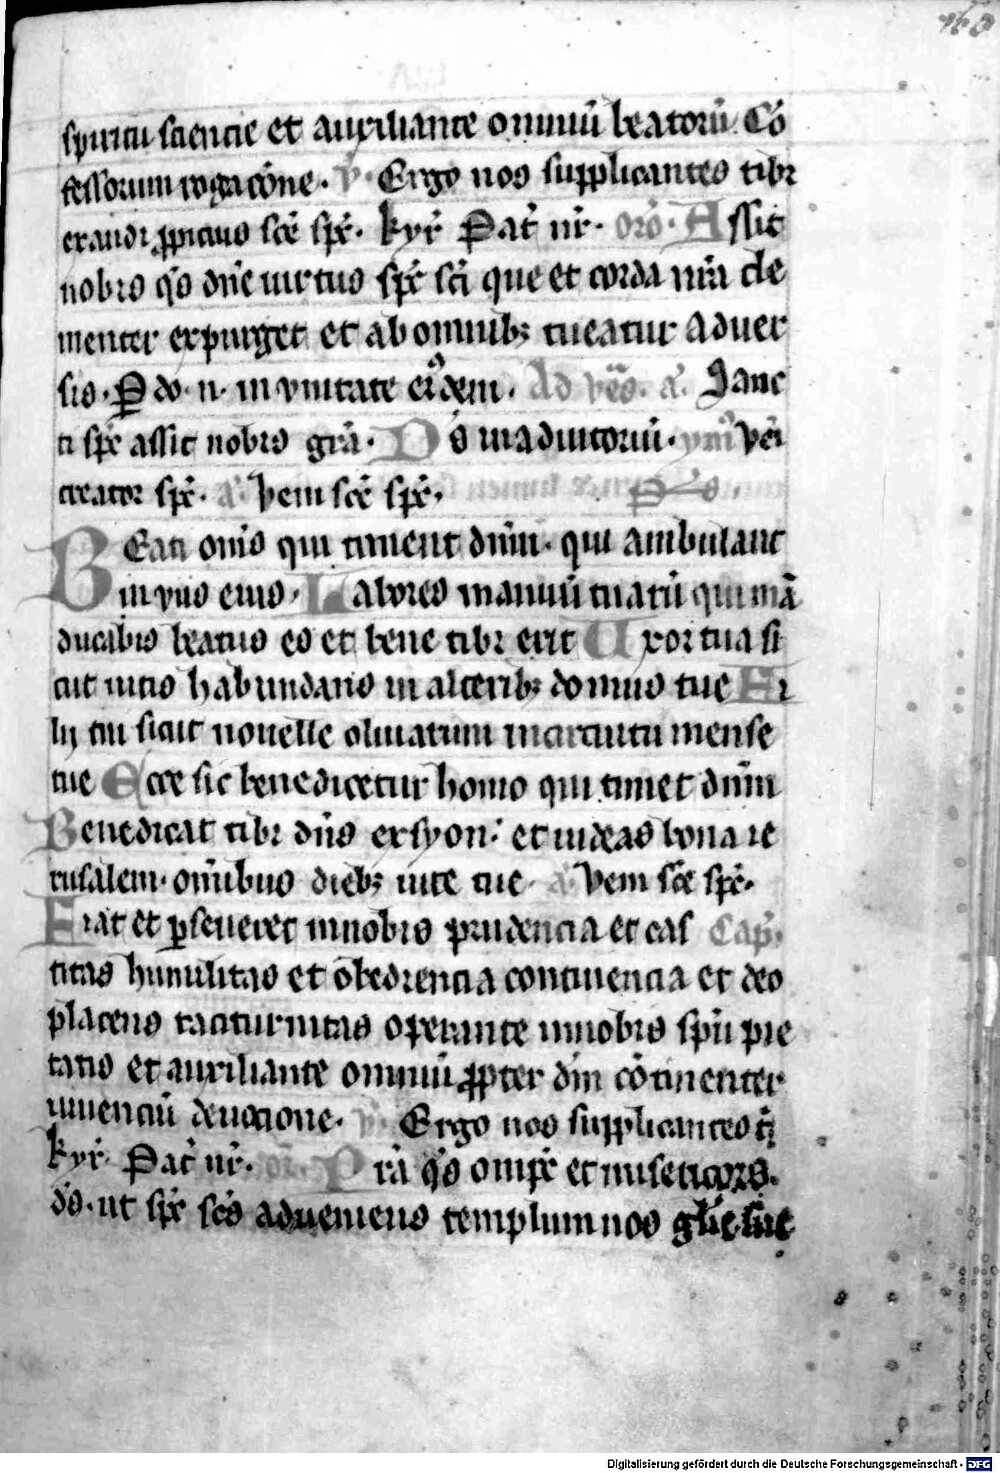 160
spiritu sciencie et auxiliante omniū beatorū Cō
fessorum rogacōne. V. Ergo nos supplicantes tibi
exaudi ꝓpicius scē spē. kyr̄ Pat̄ nr̄. orō. Assit
nobis qs̄ dn̄e uirtus spē scī que et corda nr̄a cle
menter expurget et ab omnibꝫ tueatur aduer
sis. P do. n. in vnitate eiꝰdem. Ad vēs. a. Sanc
ti spē assit nobis grā. Ds̄ in adiutoriū. ym̄ Veī
creator spē. a. Veni scē spē. Ps̄
BEati om̄s qui timent dn̄m. qui ambulant
in viis eius. Labores manuū tuarū qui mā
ducabis beatus es et bene tibi erit Uxor tua si
cut uitis habundans in lateribꝫ domus tue Fi
lij tui sicut nouelle oliuarum in circuitu mense
tue Ecce sic benedicetur homo qui timet dn̄m
Benedicat tibi dn̄s ex syon. et uideas bona ie
rusalem. om̄ibus diebꝫ uite tue. a. Veni scē spē.
Fiat et ꝑseueret in nobis prudencia et cas Cap̄.
titas humilitas et obediencia continencia et deo
placens taciturnitas operante in nobis spū pie
tatis et auxiliante omniū ꝓpter dm̄ cōtinenter
uiuenciū deuocione. V. Ergo nos supplicantes t̄
kyr̄. Pat̄ nr̄. or̄. Prā qs̄ omps̄ et misericors.
ds̄. ut spē scs̄ adueniens templum nos glīe sue
Digitalisierung gefördert durch die Deutsche Forschungsgemeinschaft - DFG